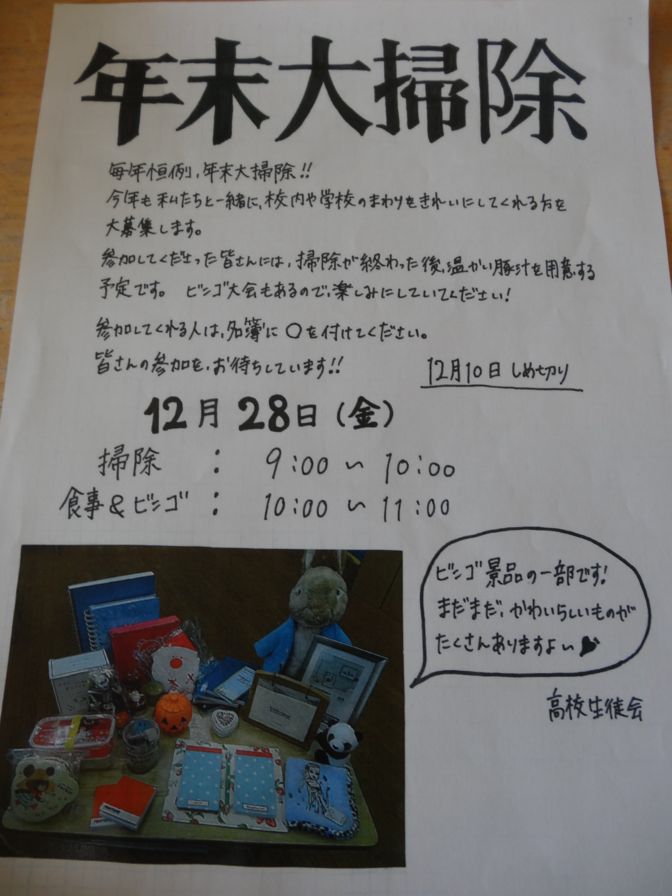 年末大掃除
毎年恒例、年末大掃除!!
今年も私たちと一緒に、校内や学校のまわりをきれいにしてくれる方を
大募集します。
参加してくださった皆さんには、掃除が終わった後、温かい豚汁を用意する
予定です。 ビンゴ大会もあるので、楽しみにしていてください!
参加してくれる人は、名簿に〇を付けてください。
皆さんの参加を、お待ちしています!!
12月10日 しめ切り
12月28日(金)
掃除 : 9:00~10:00
食事&ビンゴ : 10:00~11:00
ビンゴ景品の一部です!
まだまだ、かわいらしいものが
たくさんありますよ~♥
高校生徒会